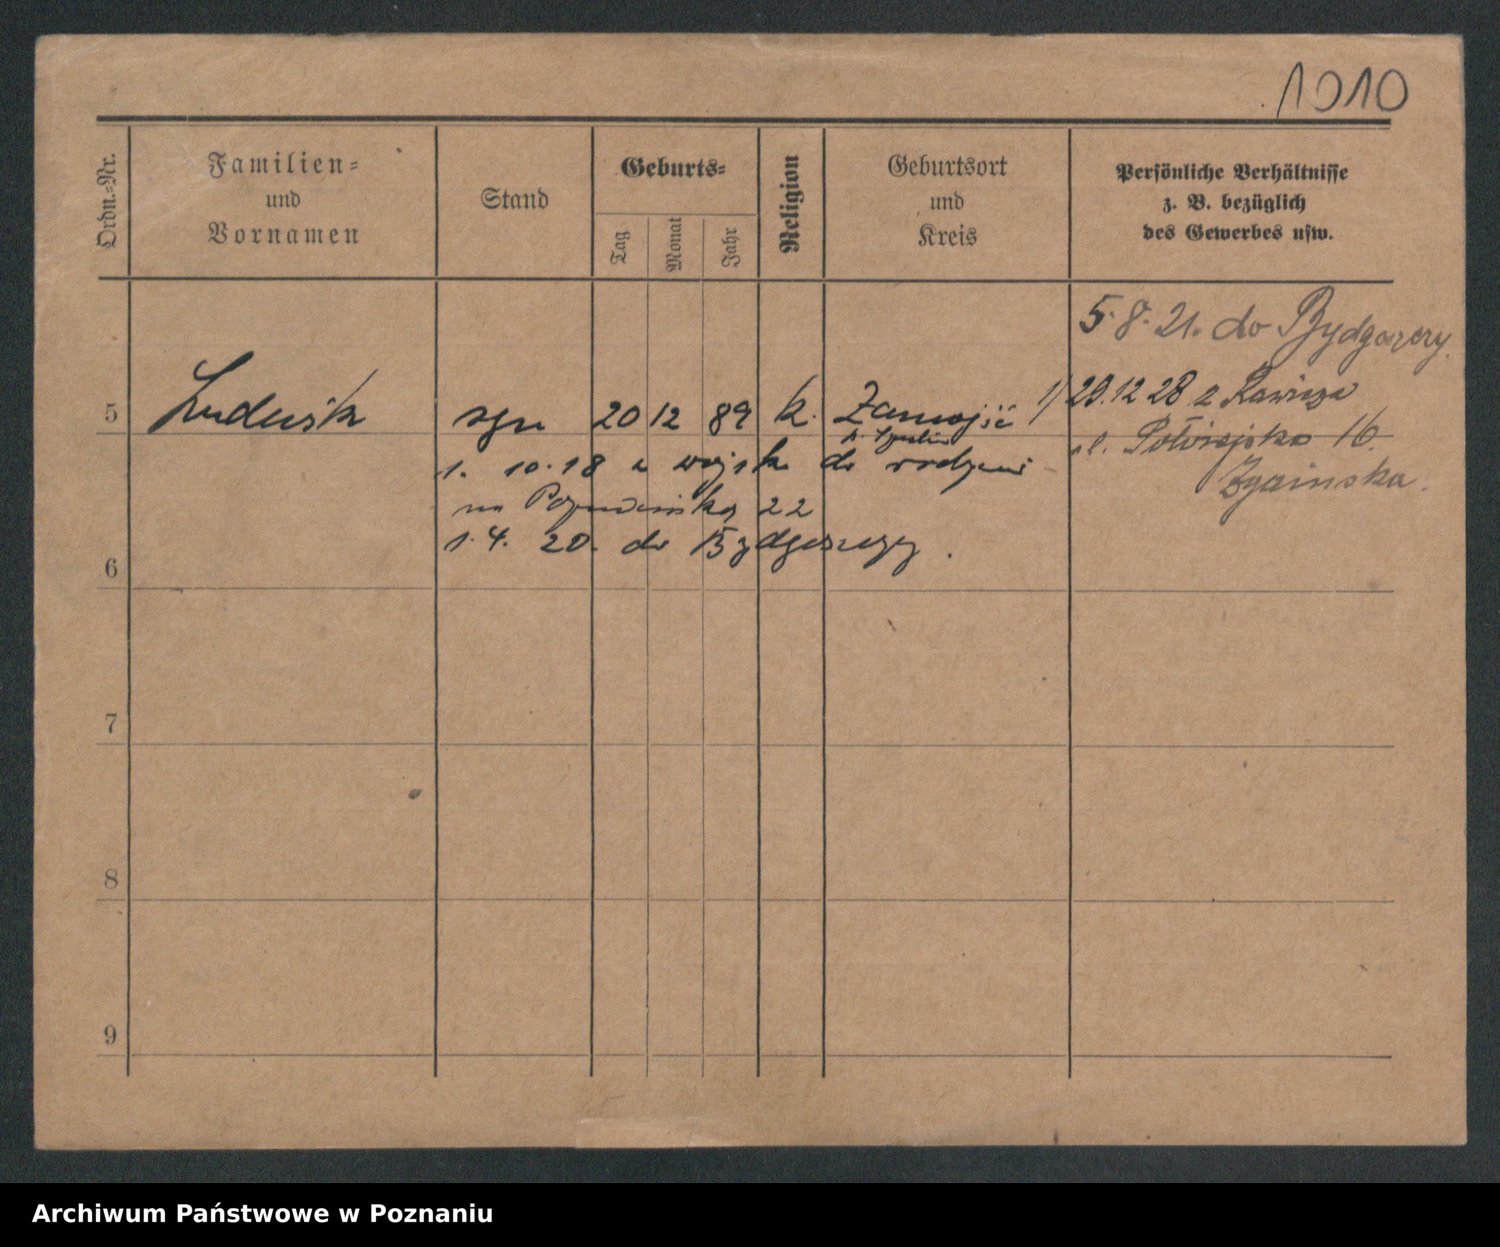 1010
Ordn.-Nr.
Familien-
und
Vornamen
Stand
Geburts-
Tag
Monat
Jahr
Religion
Geburtsort
und
Kreis
Persönliche Verhältnisse
z. B. bezüglich
des Gewerbes usw.
5. 8. 21. do Bydgoszczy.
5 Ludwik syn 20 12 89 k.
1/ 29.12 28 z Rawicza
1. 10. 18 z wojska do rodziny
16.
na 22
1. 4. 20. do Bydgoszczy.
6
7
8
9
Archiwum Państwowe w Poznaniu